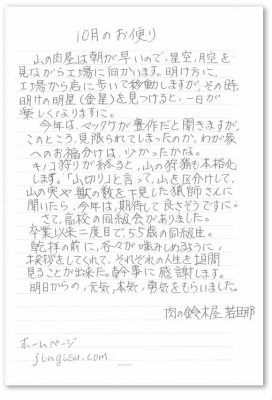 10月のお便り
山の肉屋は朝が早いので、星空、月空を
見ながら工場に向かいます。明け方に、
工場から店に歩いて移動しますが、その時、
明けの明星(金星)を見つけると、一日が
楽しくなりますに。
今年は、マッタケが豊作だと聞きますが、
このところ、見限られてしまったのか、わが家
へのお福分けは、少かったかな。
キノコ狩りが終ると、山の狩猟も本格化
します。「山切り」と言って、山を区分けして、
山の実や獣の数を下見した猟師さんに
聞いたら、今年は、期待して良さそうですに。
さて、高校の同級会がありました。
卒業以来二度目で55歳の同級生。
乾杯の前に、各々が噛みしめるように、
挨拶をしてくれて、それぞれの人生を垣間
見ることが出来た。幹事に感謝します。
明日からの、元気、本気、勇気をもらいました。
肉の鈴木屋 若旦那
ホームページ
jingisu.com.